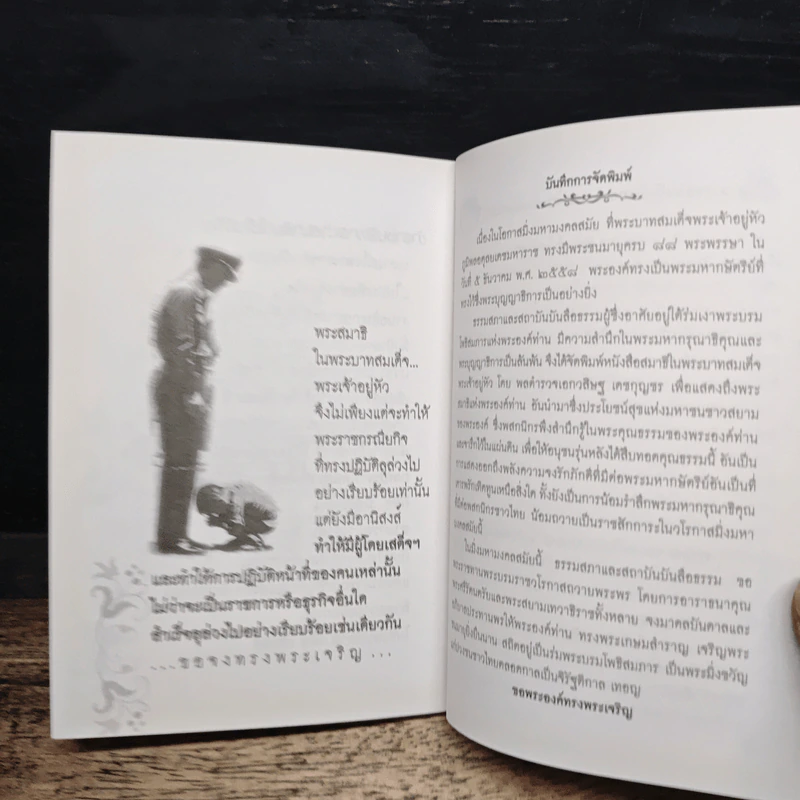 พระสมาธิ
ในพระบาทสมเด็จ...
พระเจ้าอยู่หัว
จึงไม่เพียงแต่จะทำให้
พระราชกรณียกิจ
ที่ทรงปฏิบัติลุล่วงไป
อย่างเรียบร้อยเท่านั้น
แต่ยังมีอานิสงส์
ทำให้มีผู้โดยเสด็จฯ
และทำให้การปฏิบัติหน้าที่ของคนเหล่านั้น
ไม่ว่าจะเป็นราชการหรือธุรกิจอื่นใด
สำเร็จลุล่วงไปอย่างเรียบร้อยเช่นเดียวกัน
...ขอจงทรงพระเจริญ...
บันทึกการจัดพิมพ์
เนื่องในโอกาสมิ่งมหามงคลสมัย ที่พระบาทสมเด็จพระเจ้าอยู่หัว
ภูมิพลอดุลยเดชมหาราช ทรงมีพระชนมายุครบ ๘๘ พระพรรษา ใน
วันที่ ๕ ธันวาคม พ.ศ. ๒๕๕๘ พระองค์ทรงเป็นพระมหากษัตริย์ที่
ทรงไว้ซึ่งพระบุญญาธิการเป็นอย่างยิ่ง
ธรรมสภาและสถาบันบันลือธรรมผู้ซึ่งอาศัยอยู่ใต้ร่มเงาพระบรม
โพธิสมภารแห่งพระองค์ท่าน มีความสำนึกในพระมหากรุณาธิคุณและ
พระบุญญาธิการเป็นล้นพ้น จึงได้จัดพิมพ์หนังสือสมาธิในพระบาทสมเด็จ
พระเจ้าอยู่หัว โดย พลตำรวจเอกวสิษฐ เดชกุญชร เพื่อแสดงถึงพระ
สมาธิแห่งพระองค์ท่าน อันนำมาซึ่งประโยชน์สุขแห่งมหาชนชาวสยาม
ของพระองค์ ซึ่งพสกนิกรพึงสำนึกรู้ในพระคุณธรรมของพระองค์ท่าน
และจารึกไว้ในแผ่นดิน เพื่อให้อนุชนรุ่นหลังได้สืบทอดคุณธรรมนี้ อันเป็น
การแสดงออกถึงพลังความจงรักภักดีที่มีต่อพระมหากษัตริย์อันเป็นที่
เคารพรักเทิดทูนเหนือสิ่งใด ทั้งยังเป็นการน้อมรำลึกพระมหากรุณาธิคุณ
ที่มีต่อพสกนิกรชาวไทย น้อมถวายเป็นราชสักการะในวโรกาสมิ่งมหา
มงคลสมัยนี้
ในมิ่งมหามงคลสมัยนี้ ธรรมสภาและสถาบันบันลือธรรม ขอ
พระราชทานพระบรมราชวโรกาสถวายพระพร โดยการอาราธนาคุณ
พระศรีรัตนตรัยและพระสยามเทวาธิราชทั้งหลาย จงมาดลบันดาลและ
อภิบาลประทานพรให้พระองค์ท่าน ทรงพระเกษมสำราญ เจริญพระ
ชนมายุยิ่งยืนนาน สถิตอยู่เป็นร่มพระบรมโพธิสมภาร เป็นพระมิ่งขวัญ
แก่ปวงชนชาวไทยตลอดกาลเป็นจิรัฐติกาล เทอญ
ขอพระองค์ทรงพระเจริญ